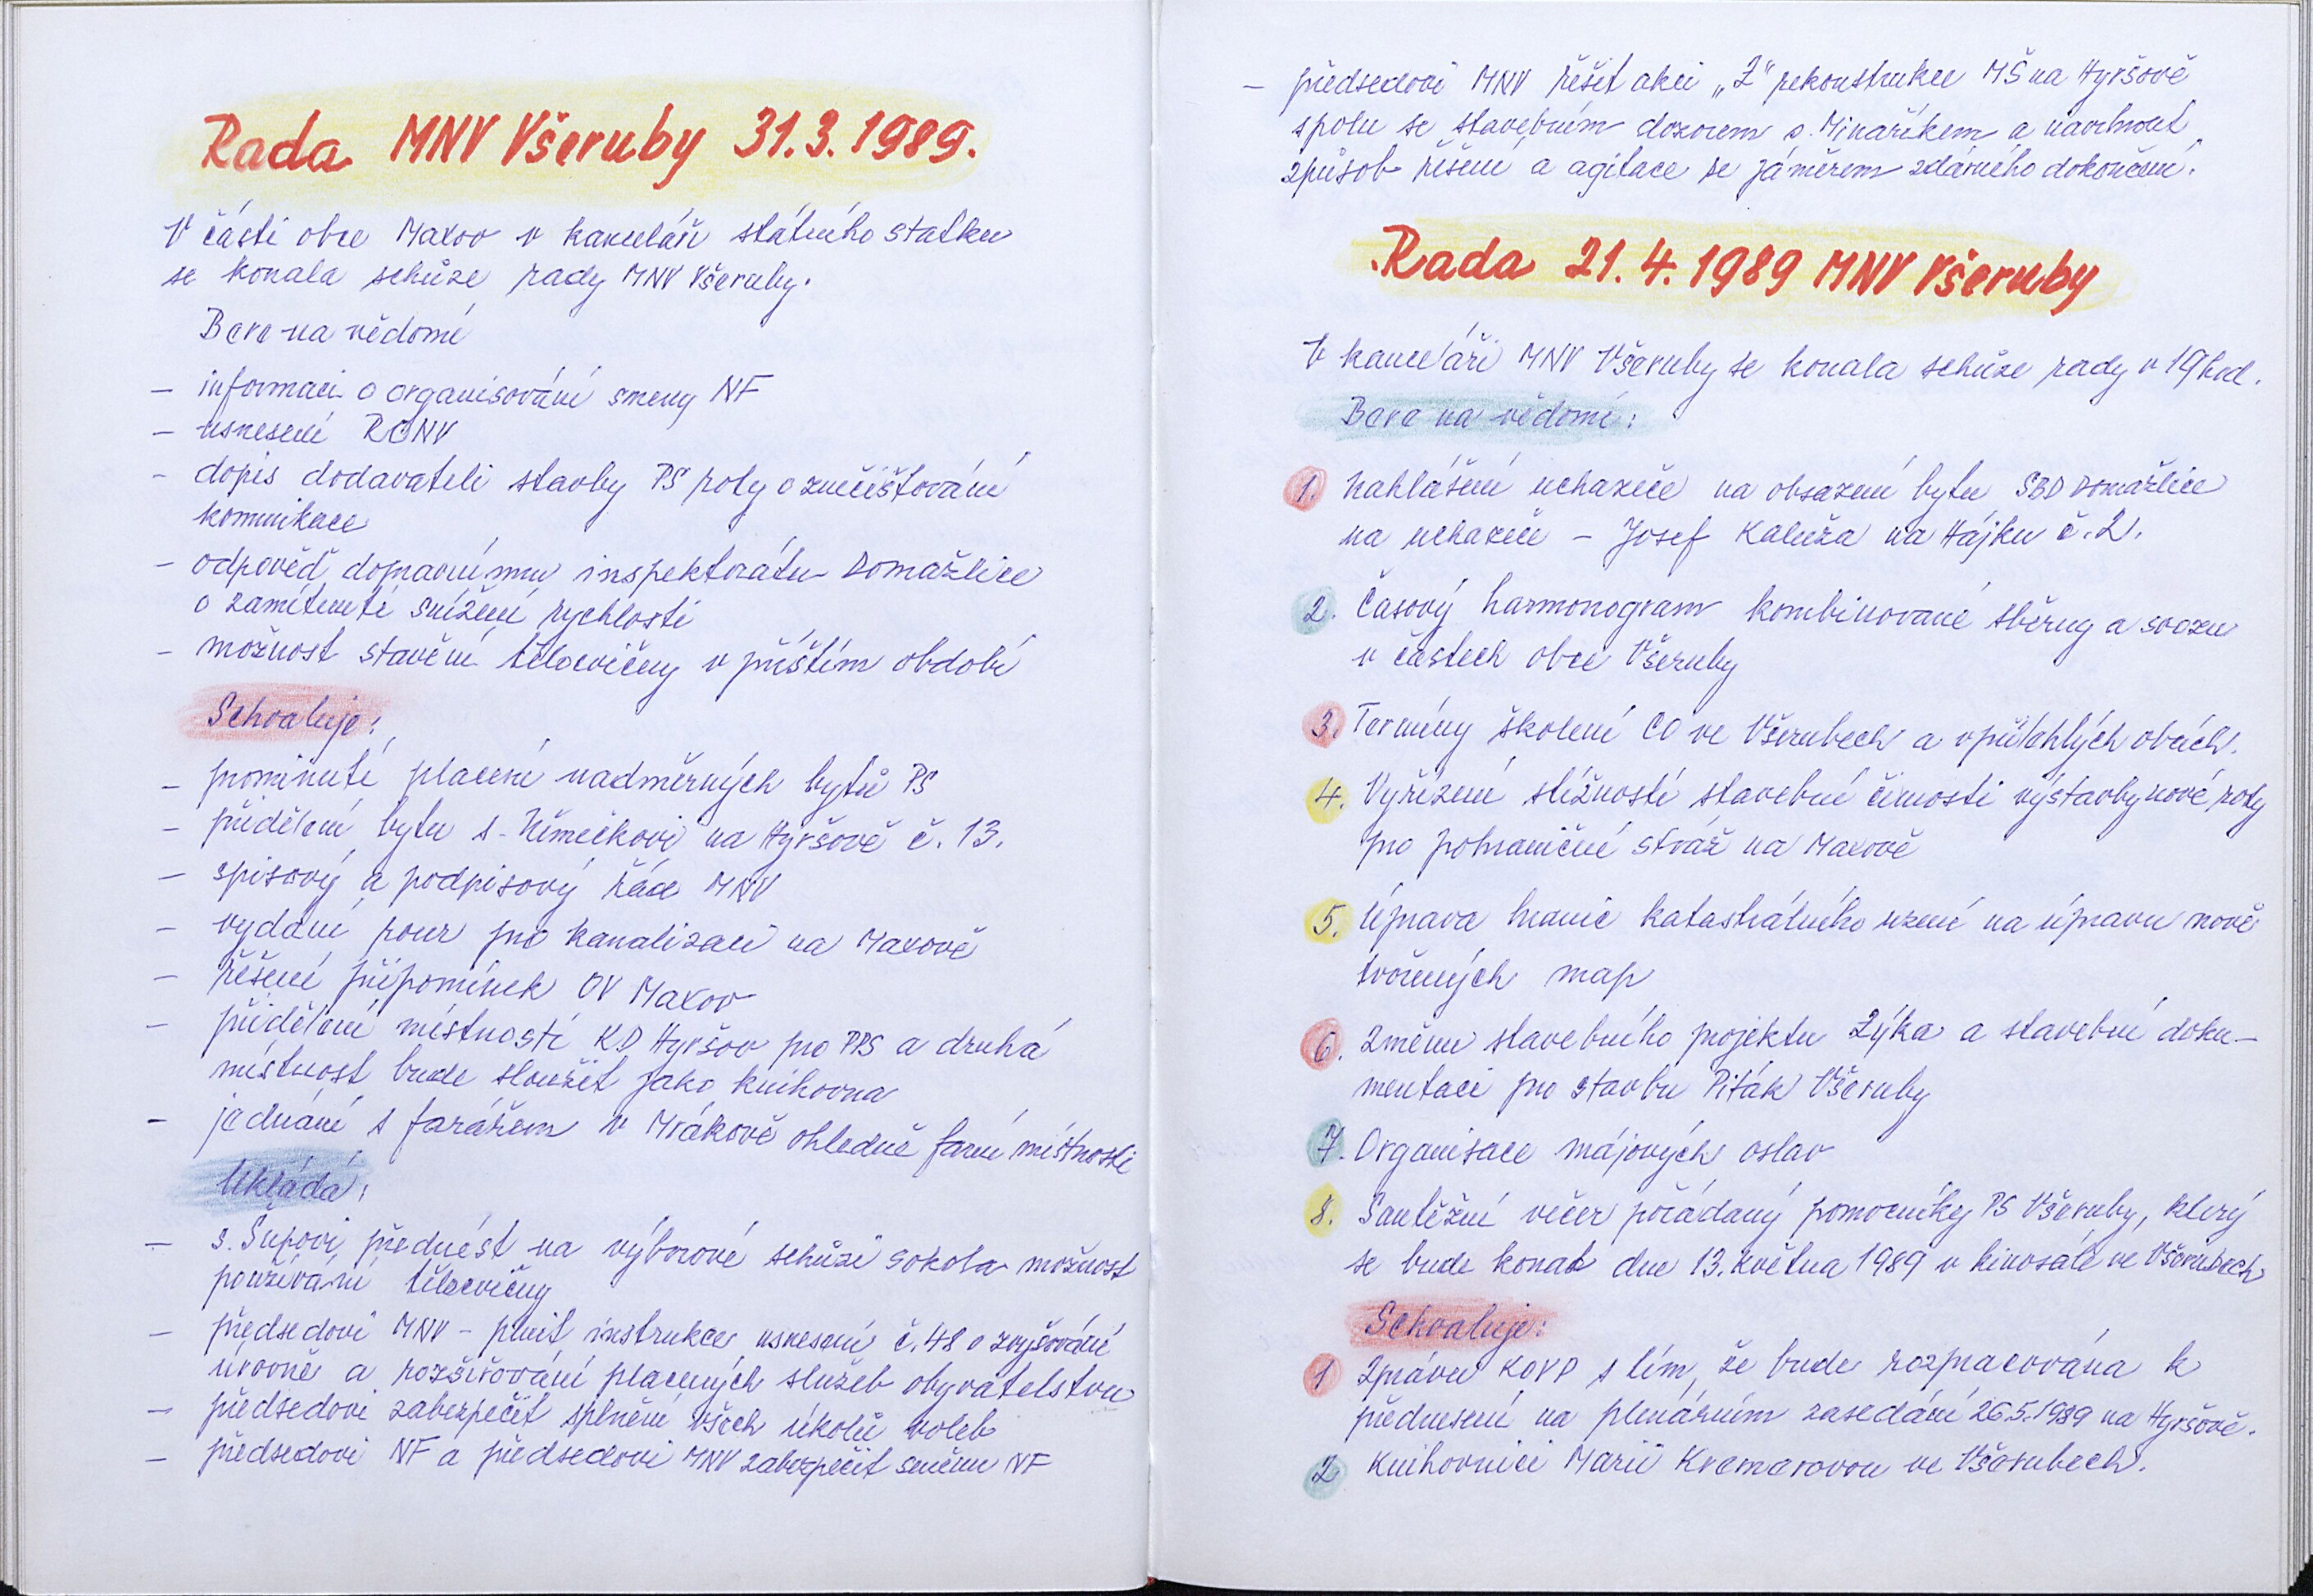 Rada MNV Všeruby 31.3.1989.
V části obce Maxov v kanceláři státního statku
se konala schůze rady MNV Všeruby.
Bere na vědomí
— informaci o organisování smeny NF
— usnesení RONV
- dopis dodavateli stavby PS roty o znečišťování
komunikace
- odpověď dopravnímu inspektorátu Domažlice
o zamítnutí snížení rychlosti
- možnost stavění tělocvičny v příštím období
Schvaluje:
- prominutí placení nadměrných bytů PS
- přidělení bytu s. Němečkovi na Hyršově č. 13.
— spisový a podpisový řád MNV
- vydání rour pro kanalizaci na Maxově
— řešení připomínek OV Maxov
— přidělení místnosti KD Hyršov pro PPS a druhá
místnost bude sloužit jako knihovna
- jednání s farářem v Mrákově ohledně farní místnosti
Ukládá:
— s. Šupovi přednést na výborové schůzi Sokola možnost
používání tělocvičny
— předsedovi MNV - plnit instrukce usnesení č. 48 o zvyšování
úrovně a rozšiřování placených služeb obyvatelstvu
— předsedovi zabezpečit splnění všech úkolů voleb
— předsedovi NF a předsedovi MNV zabezpečit směnu NF
— předsedovi MNV řešit akci „Z" rekonstrukce MŠ na Hyršově
spolu se stavebním dozorem s. Minaříkem a navrhnout
způsob řešení a agitace se záměrem zdárného dokončení.
Rada 21.4.1989 MNV Všeruby
V kanceláři MNV Všeruby se konala schůze rady v 19 hod.
Bere na vědomí:
1. Nahlášení uchazeče na obsazení bytu SBD Domažlice
na uchazeče - Josef Kaluža na Hájku č. 2.
2. Časový harmonogram kombinované sběrny a svozu
v částech obce Všeruby
3. Termíny školení CO ve Všerubech a v přilehlých obcích.
4. Vyřízení stížnosti stavební činosti výstavby nové roty
pro pohraniční stráž na Maxově
5. Úprava hranic katastrálního uzení na úpravu nově
tvořených map
6. Změnu stavebního projektu Zýka a stavební doku-
mentaci pro stavbu Piták Všeruby
7. Organisace májových oslav
8. Soutěžní večer pořádaný pomocníky PS Všeruby, který
se bude konat dne 13. května 1989 v kinosále ve Všerubech
Schvaluje:
1 Zprávu KOVP s tím, že bude rozpracována k
přednesení na plenárním zasedání 26.5.1989 na Hyršově.
2 Knihovnici Marii Kramarovou ve Všerubech.